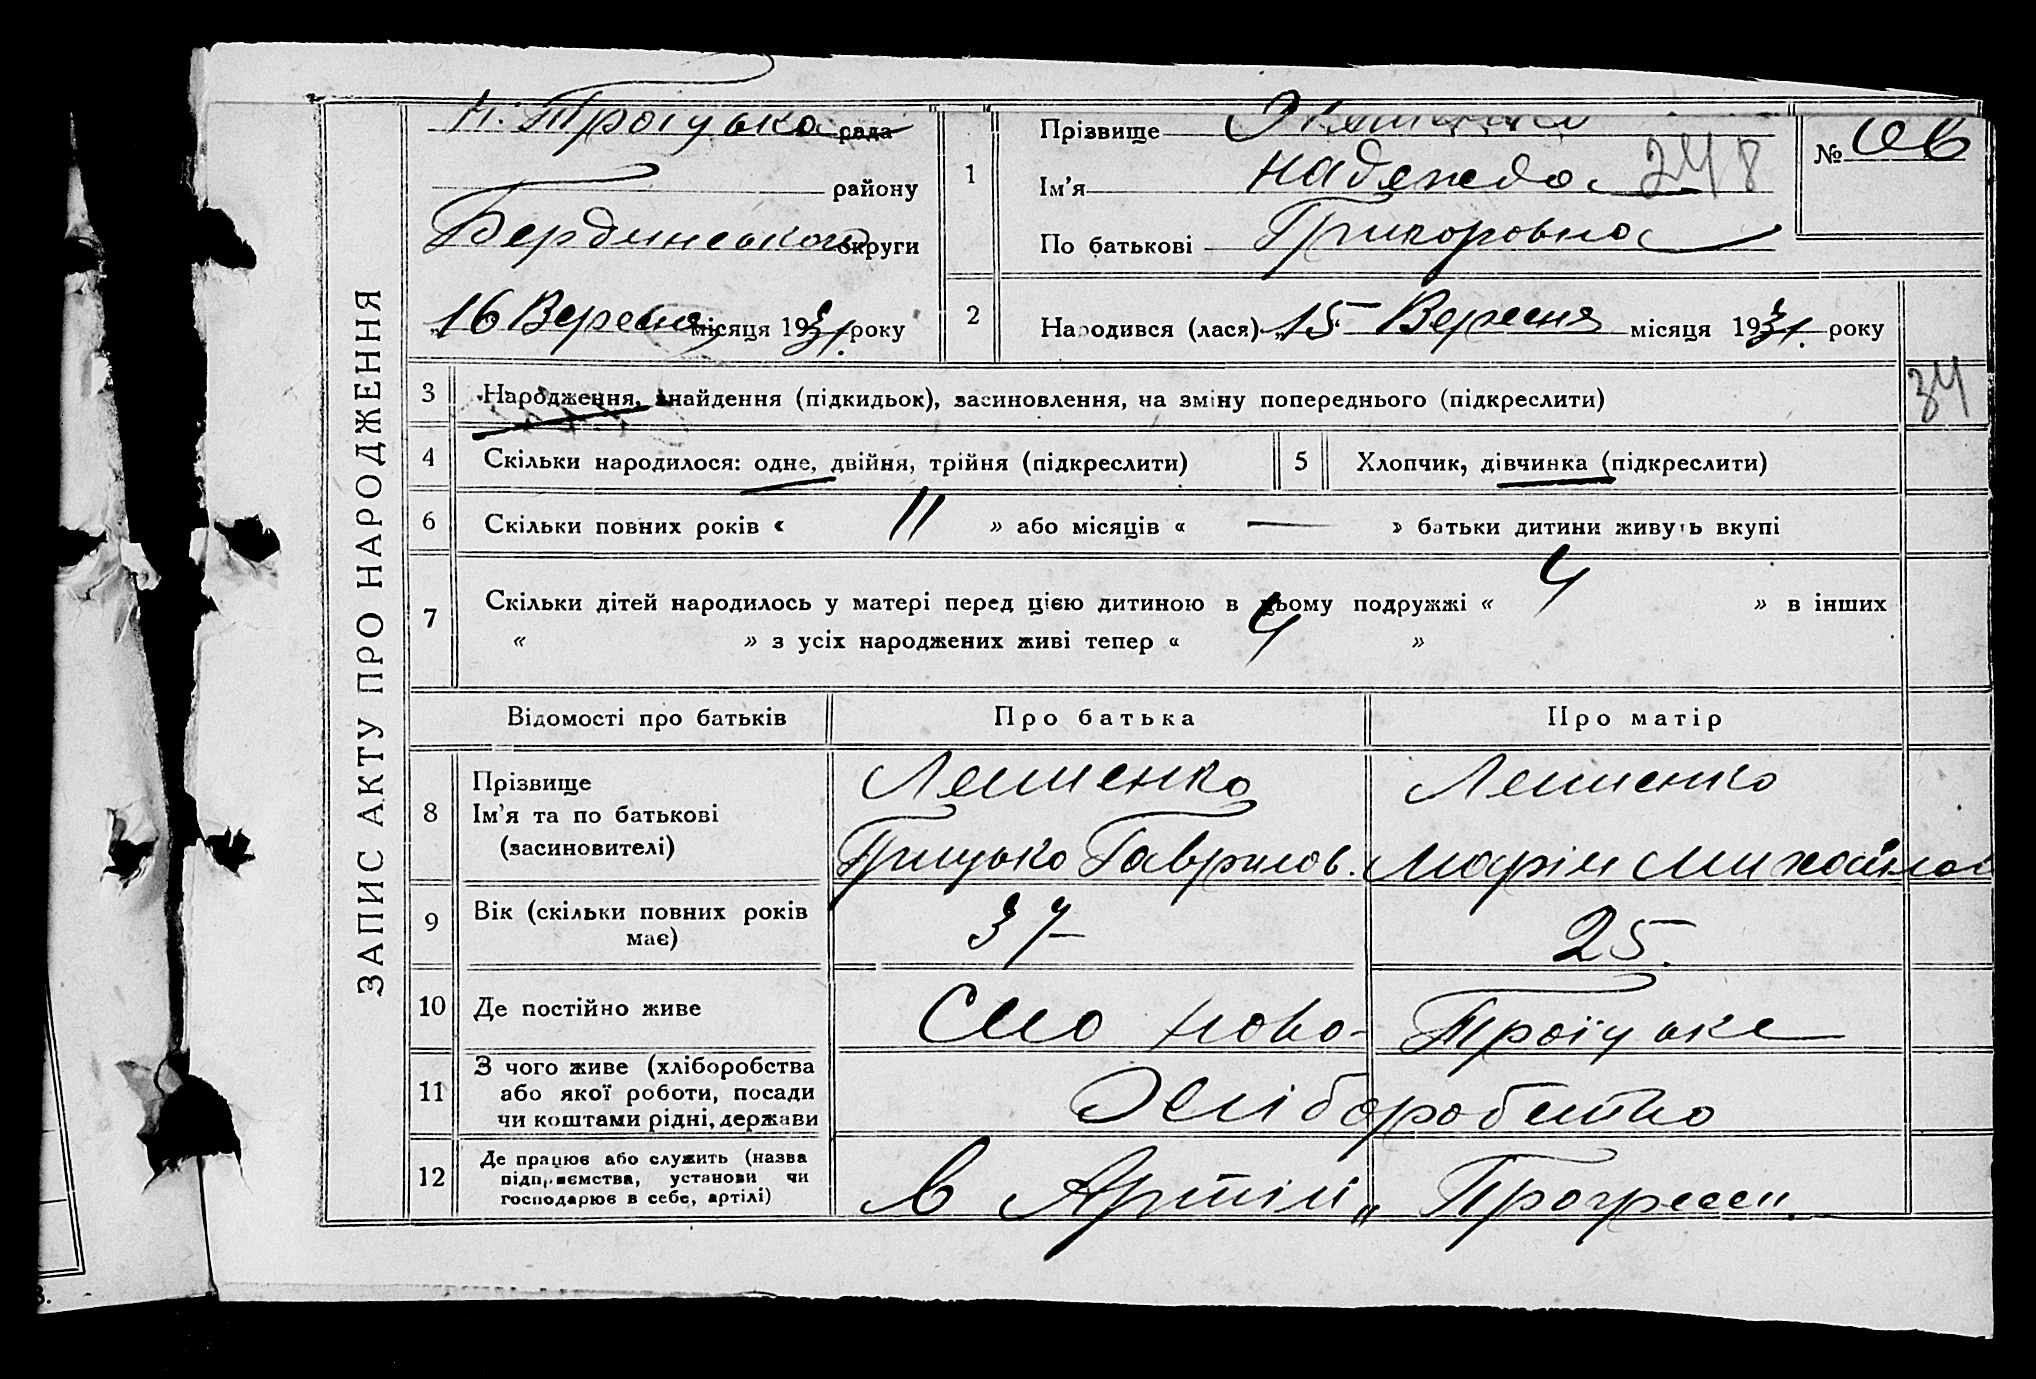 ЗАПИС АКТУ ПРО НАРОДЖЕННЯ
Н. Троіцька рада
району
Бердинської округи
16 Вересня місяця 1931. року
1
Прізвище
Ім'я Надежда 248
По батькові Григоровна
№
2
Народився (лася) „15 Вересня місяця 1931. року
3 Народження, знайдення (підкидьок), засиновлення, на зміну попереднього (підкреслити) 34
4 Скільки народилося: одне, двійня, трійня (підкреслити) 5 Хлопчик, дівчинка (підкреслити)
6 Скільки повних років « 11 » або місяців « — » батьки дитини живуть вкупі
7 Скільки дітей народилось у матері перед цією дитиною в цьому подружжі « 4 » в інших
« » з усіх народжених живі тепер « 4 »
Відомості про батьків Про батька Про матір
8 Прізвище Ляшенко Ляшенко
Ім'я та по батькові
(засновителі) Грицько Гаврилов. Марія Михайлов
9 Вік (скільки повних років має) 37 25.
10 Де постійно живе Село Ново-Троїцьке
11 З чого живе (хліборобства
або якої роботи, посади
чи коштами рідні, держави Хліборобство
12 Де працює або служить (назва
підприємства, установи чи
господарює в себе, артілі) в Артілі „Прогрес".